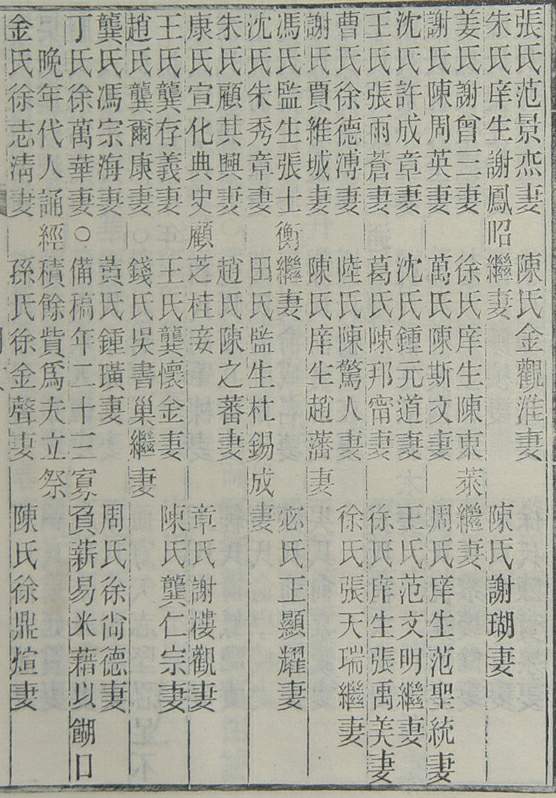 張氏范景杰妻　陳氏金觀淮妻
朱氏庠生謝鳳昭繼妻　陳氏謝瑚妻
姜氏謝曾三妻　徐氏庠生陳東萊繼妻
謝氏陳周英妻　萬氏陳斯文妻　周氏庠生范聖統妻
沈氏許成章妻　沈氏鍾元道妻　王氏范文明繼妻
王氏張雨蒼妻　葛氏陳邦甯妻　徐氏庠生張禹美妻
曹氏徐德溥妻　陸氏陳驚人妻　徐氏張天瑞繼妻
謝氏賈維城妻　陳氏庠生趙藩妻
馮氏監生張士衡繼妻　宓氏王顯耀妻
沈氏朱秀章妻　田氏監生杜錫成妻
朱氏顧其興妻　趙氏陳之蕃妻
康氏宣化典史顧芝桂妾　章氏謝樓觀妻
王氏龔存義妻　王氏龔懷金妻　陳氏龔仁宗妻
趙氏龔爾康妻　錢氏吳書巢繼妻
龔氏馮宗海妻　黃氏鍾璜妻　周氏徐尙德妻
丁氏徐萬華妻○備稿年二十三寡負薪易米藉以餬口
晚年代人誦經積餘貲爲夫立祭
金氏徐志淸妻　孫氏徐金聲妻　陳氏徐鼎煊妻